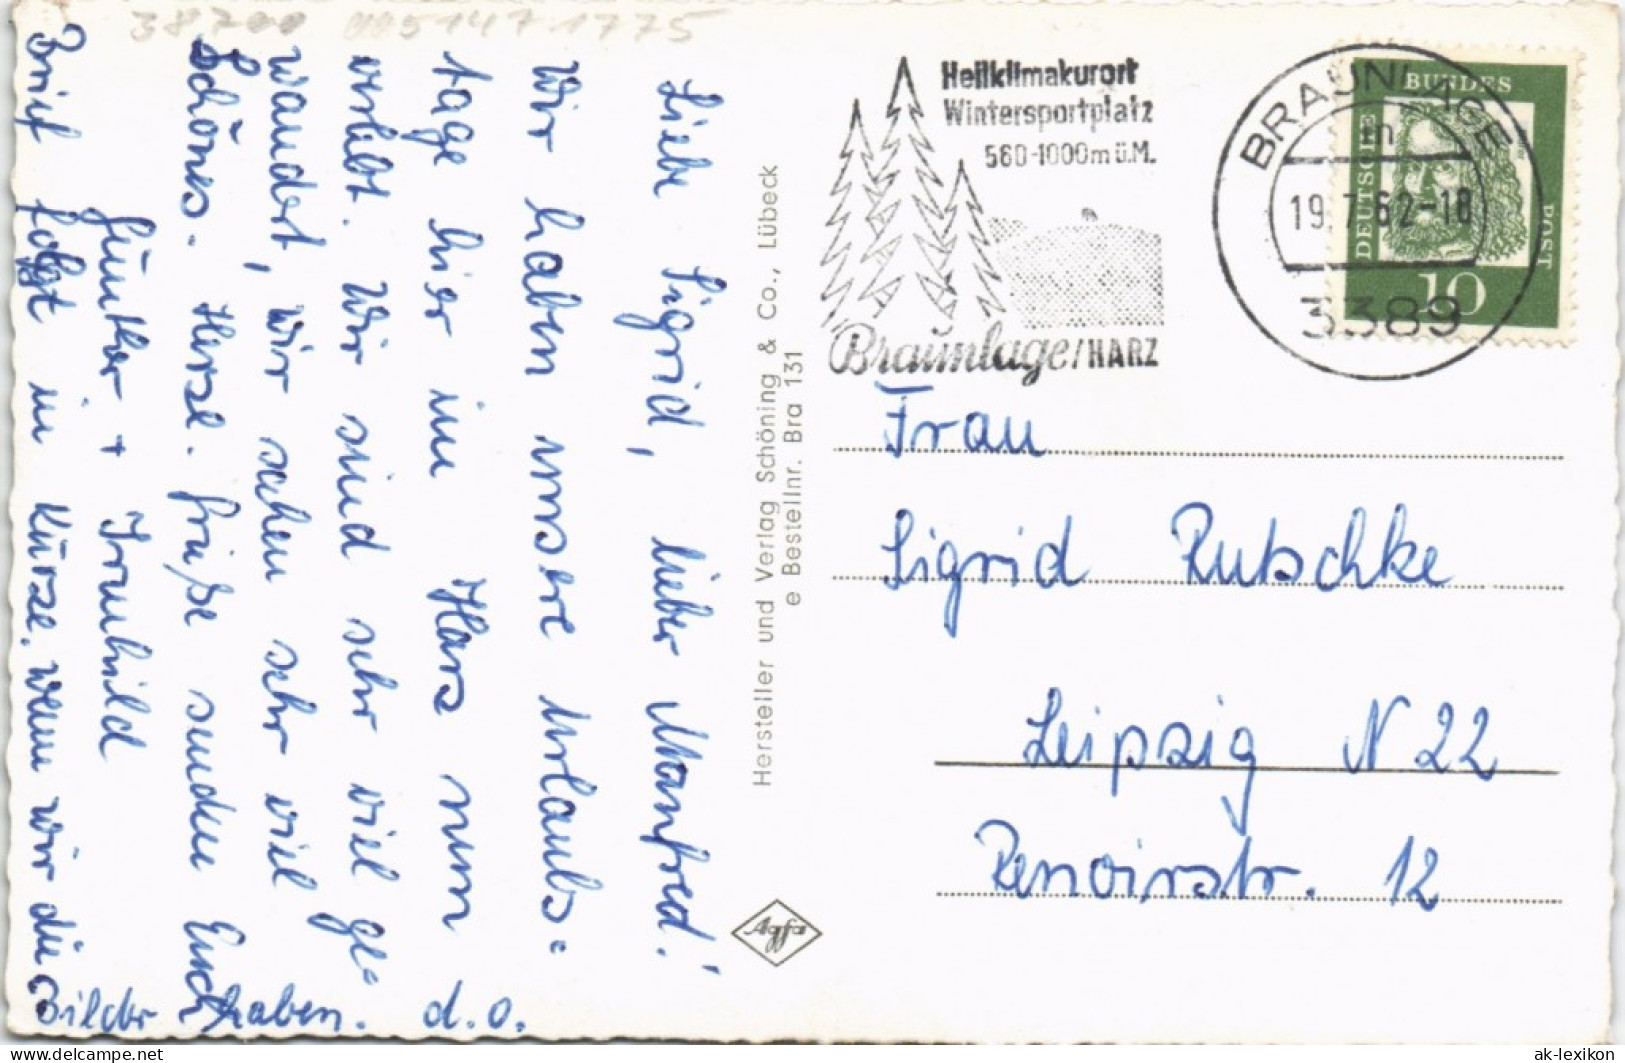 38700 005147 1775
Liebe Sigrid, lieber Manfred!
Wir haben unsere Urlaubs=
tage hier im Harz nun
verlebt. Wir sind sehr viel ge=
wandert, wir sahen sehr viel
Schönes. Herzl. Grüße senden Euch
Günther + Irmhild
Brief folgt in Kürze. Wenn wir die
Bilder haben. d.o.
Hersteller und Verlag Schöning & Co., Lübeck
e Bestellnr. Bra 131
Agfa
Heilklimakurort
Wintersportplatz
560-1000m ü.M.
Braunlage/HARZ
BRAUNLAGE
19.7.62-18
3389
DEUTSCHE BUNDES POST
10
Frau
Sigrid Rutschke
Leipzig N 22
Renoirstr. 12
ak-lexikon
www.delcampe.net